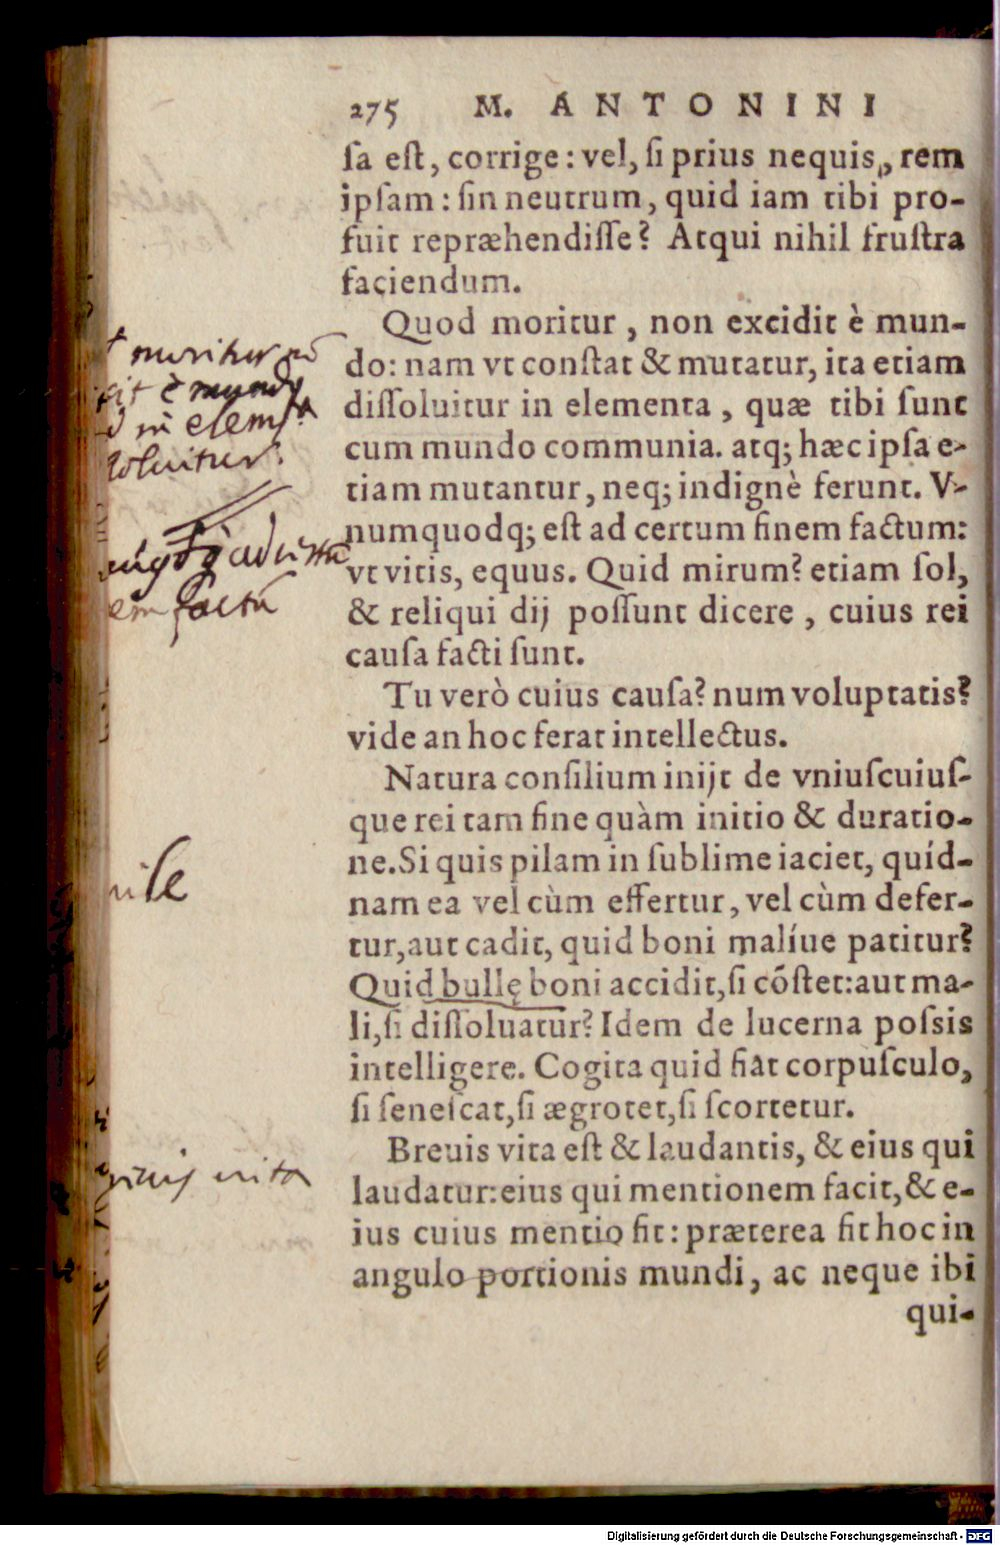 275 M. ANTONINI
ſa eſt, corrige: vel, ſi prius nequis, rem
ipſam: ſin neutrum, quid iam tibi pro-
fuit repræhendiſſe? Atqui nihil fruſtra
faciendum.
Quod moritur, non excidit è mun-
do: nam vt conſtat & mutatur, ita etiam
diſſoluitur in elementa, quæ tibi ſunt
cum mundo communia. atq; hæc ipſa e-
tiam mutantur, neq; indignè ferunt. V-
numquodq; eſt ad certum finem factum:
vt vitis, equus. Quid mirum? etiam ſol,
& reliqui dij poſſunt dicere, cuius rei
cauſa facti ſunt.
Tu verò cuius cauſa? num voluptatis?
vide an hoc ferat intellectus.
Natura conſilium inijt de vniuſcuiuſ-
que rei tam fine quàm initio & duratio-
ne. Si quis pilam in ſublime iaciet, quíd-
nam ea vel cùm effertur, vel cùm defer-
tur, aut cadit, quid boni malíue patitur?
Quid bullę boni accidit, ſi cõſtet: aut ma-
li, ſi diſſoluatur? Idem de lucerna poſsis
intelligere. Cogita quid fiat corpuſculo,
ſi ſeneſcat, ſi ægrotet, ſi ſcortetur.
Breuis vita eſt & laudantis, & eius qui
laudatur: eius qui mentionem facit, & e-
ius cuius mentio fit: præterea fit hoc in
angulo portionis mundi, ac neque ibi
qui-
moritur nō
è mundo
in elem̄ta
ad certū
factū
vita
Digitalisierung gefördert durch die Deutsche Forschungsgemeinschaft - DFG